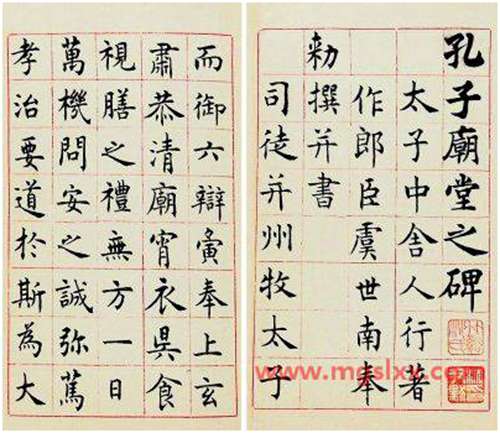 孔子廟堂之碑
太子中舍人行著
作郎臣虞世南奉
勅撰并書
司徒并州牧太子
而御六辯夤奉上玄
肅恭清廟宵衣昃食
視膳之禮無方一日
萬機問安之誠弥篤
孝治要道於斯為大